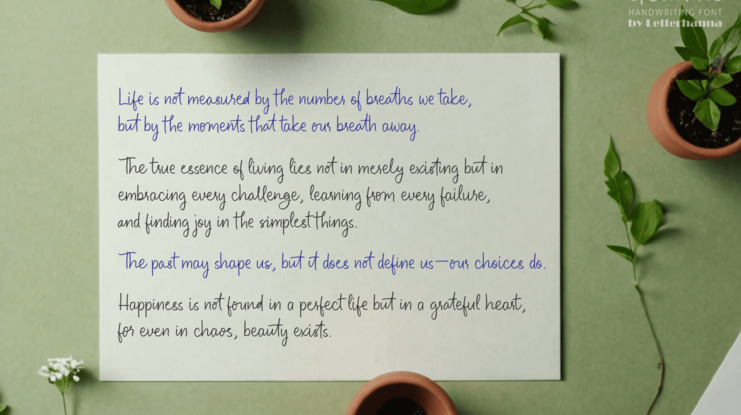 HANDWRITING FONT
by Letterhanna
Life is not measured by the number of breaths we take,
but by the moments that take our breath away.
The true essence of living lies not in merely existing but in
embracing every challenge, learning from every failure,
and finding joy in the simplest things.
The past may shape us, but it does not define us—our choices do.
Happiness is not found in a perfect life but in a grateful heart,
for even in chaos, beauty exists.